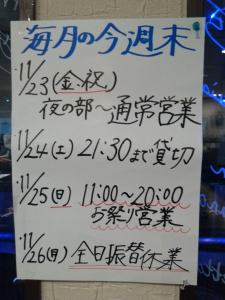 海月の今週末
・11/23(金・祝)
夜の部〜通常営業
・11/24(土) 21:30まで貸切
・11/25(日) 11:00〜20:00
お祭り営業
・11/26(月) 全日振替休業